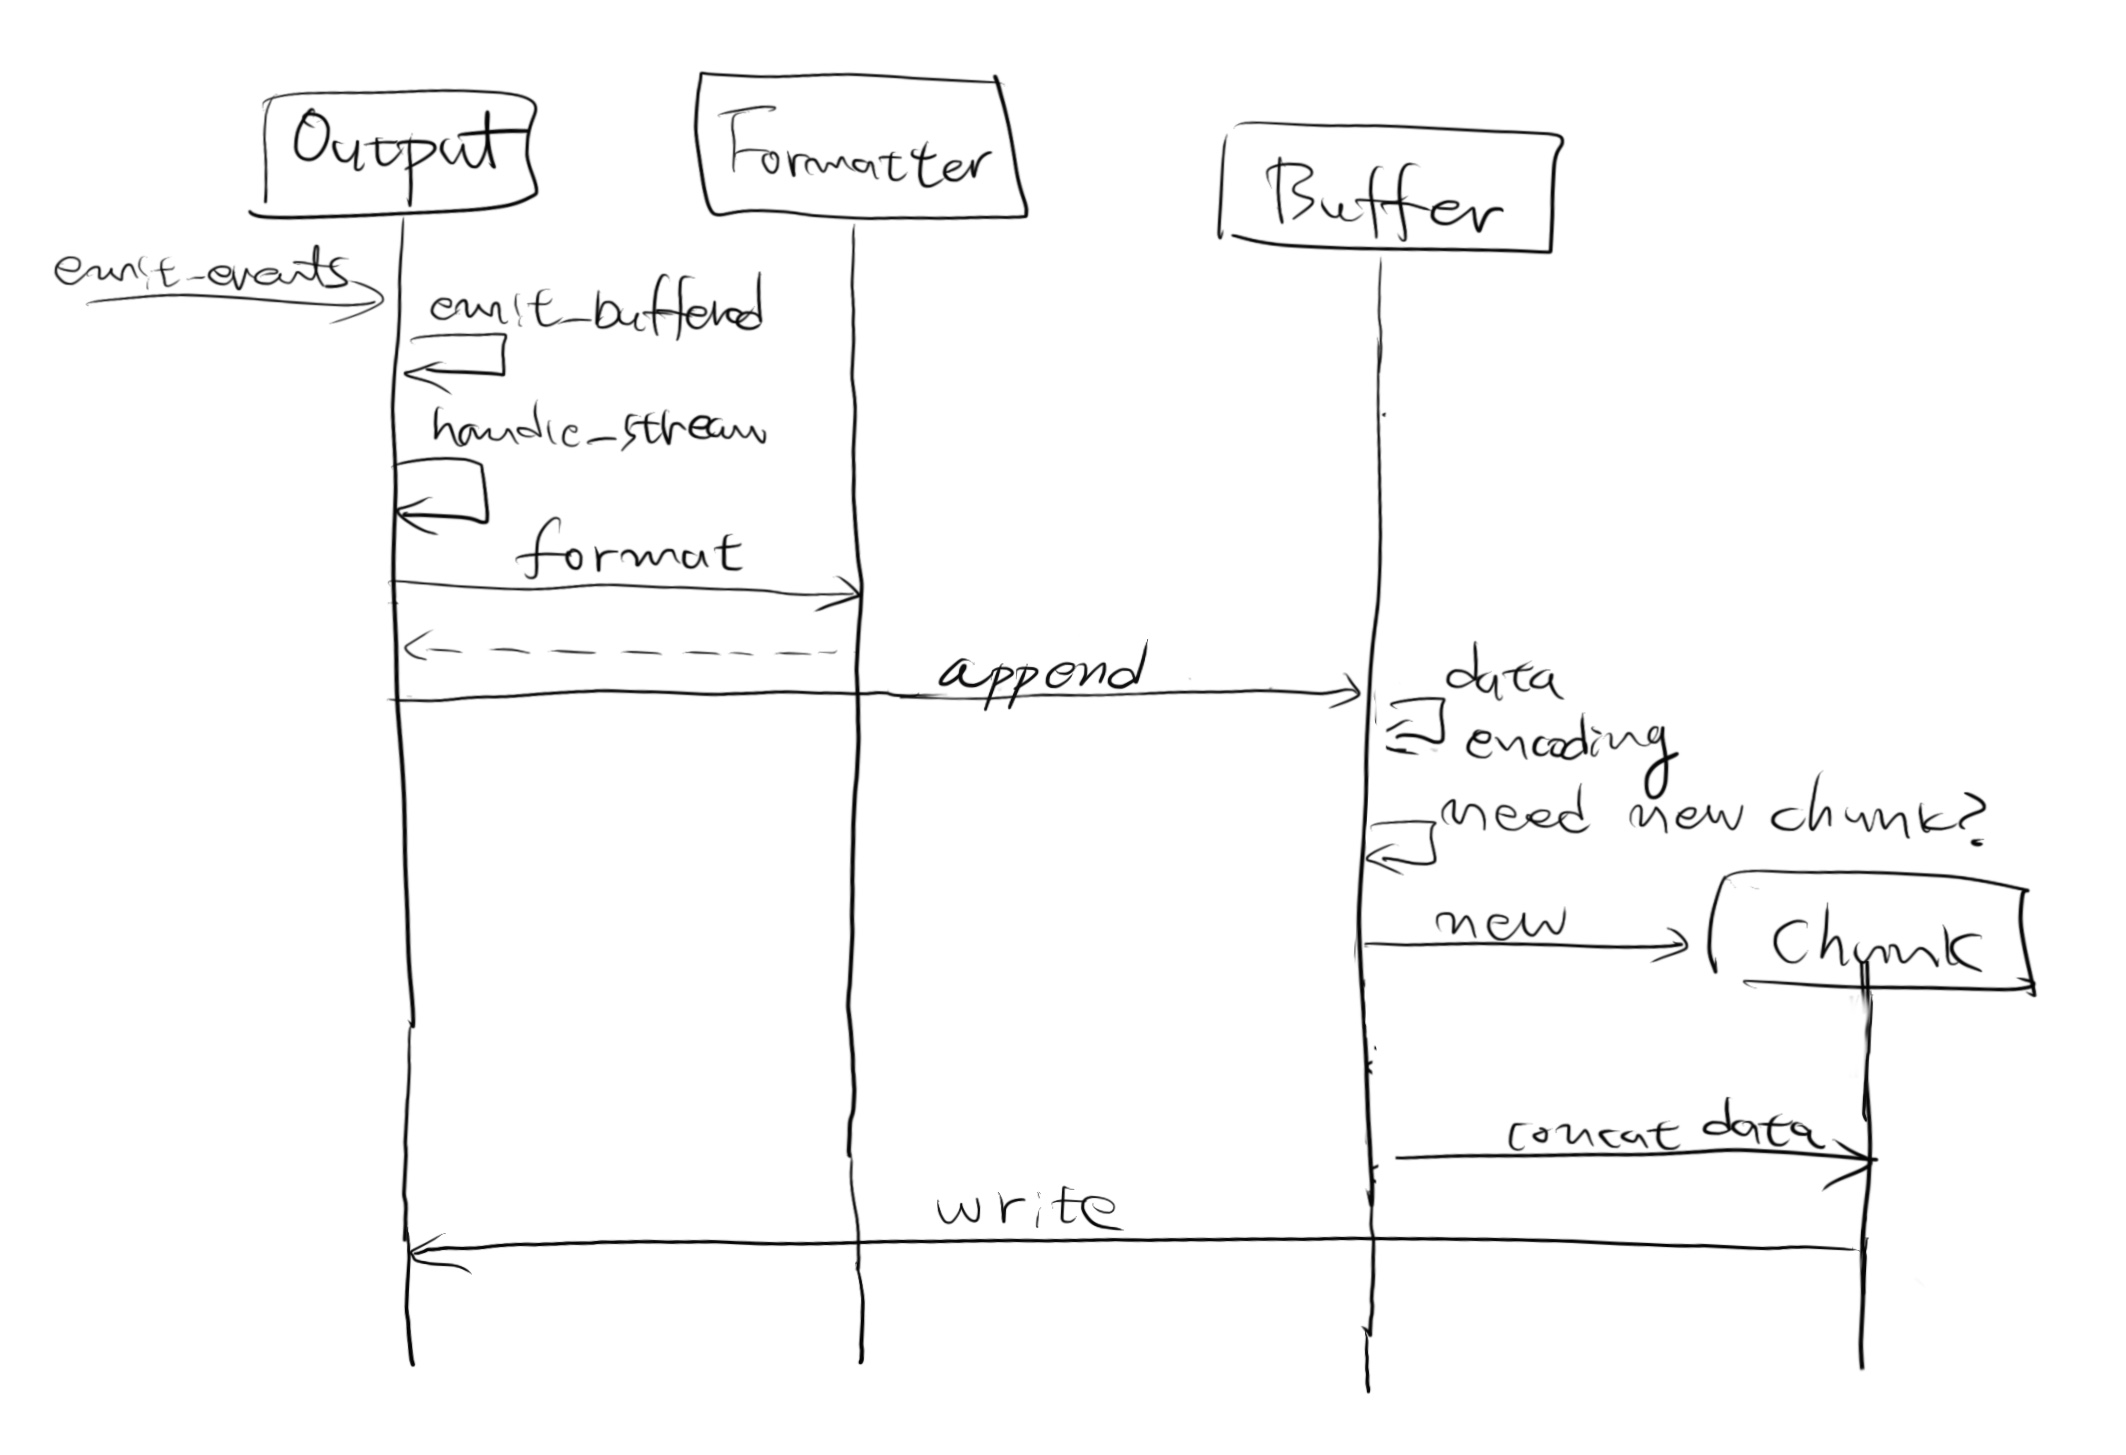 Output
Formatter
Buffer
emit_events
emit_buffered
handle_stream
format
append
data
encoding
need new chunk?
new
Chunk
concat data
write